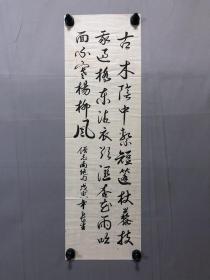 古木陰中繫短篷杖藜扶
我過橋東沾衣欲濕杏花雨吹
面不寒楊柳風
僧志南絕句